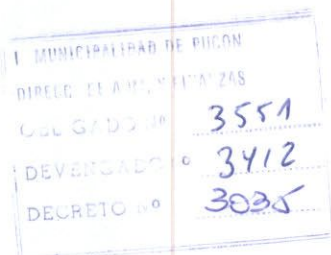 I MUNICIPALIDAD DE PUCON
DIREC. DE ADM. Y FINANZAS
OBLIGADO Nº 3551
DEVENGADO Nº 3412
DECRETO Nº 3035